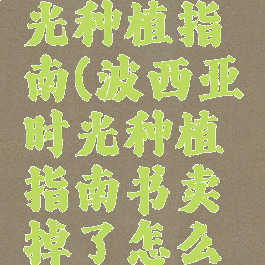 光种植指
南(波西亚
时光种植
指南书卖
掉了怎么